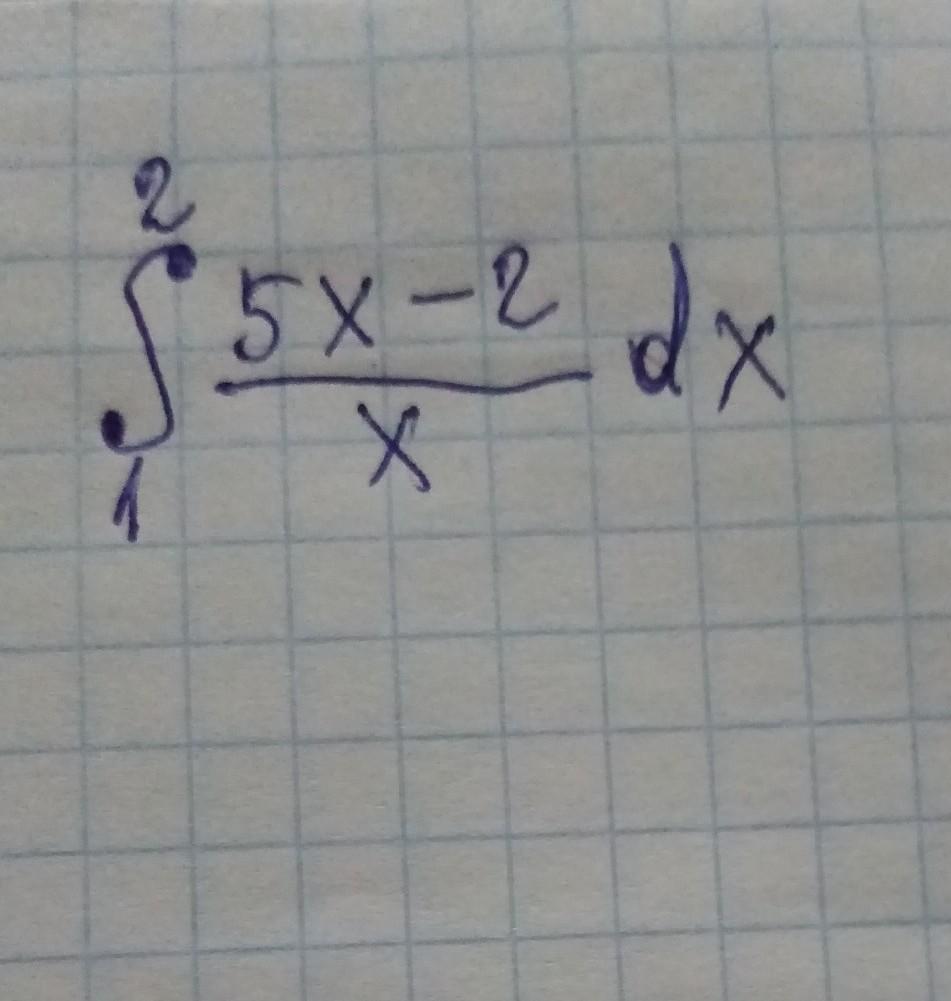 ∫₁² (5x-2)/x dx